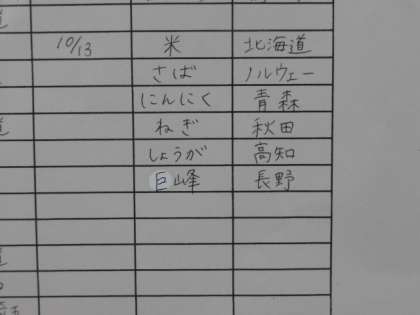 10/13 米 北海道
さば ノルウェー
にんにく 青森
ねぎ 秋田
しょうが 高知
巨峰 長野